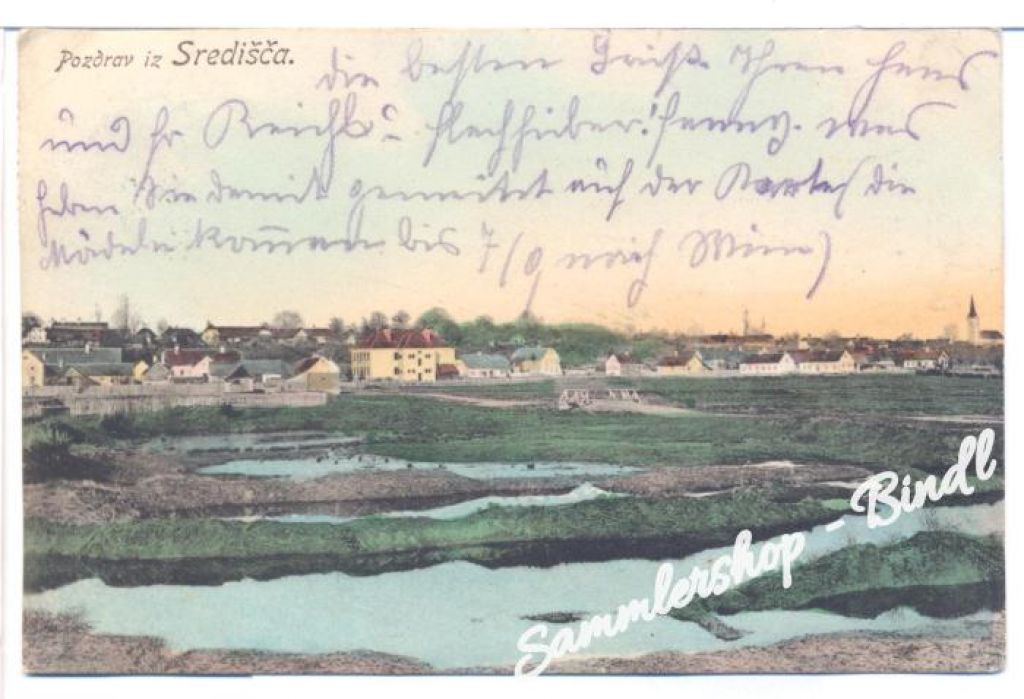 Pozdrav iz Središča.
die besten Grüße Ihren Hans
und fr Reichl
haben Sie damit gemeint auf der Karte (die
Mädeln kom̄en bis 7/9 nach Wien)
Sammlershop - Bindl